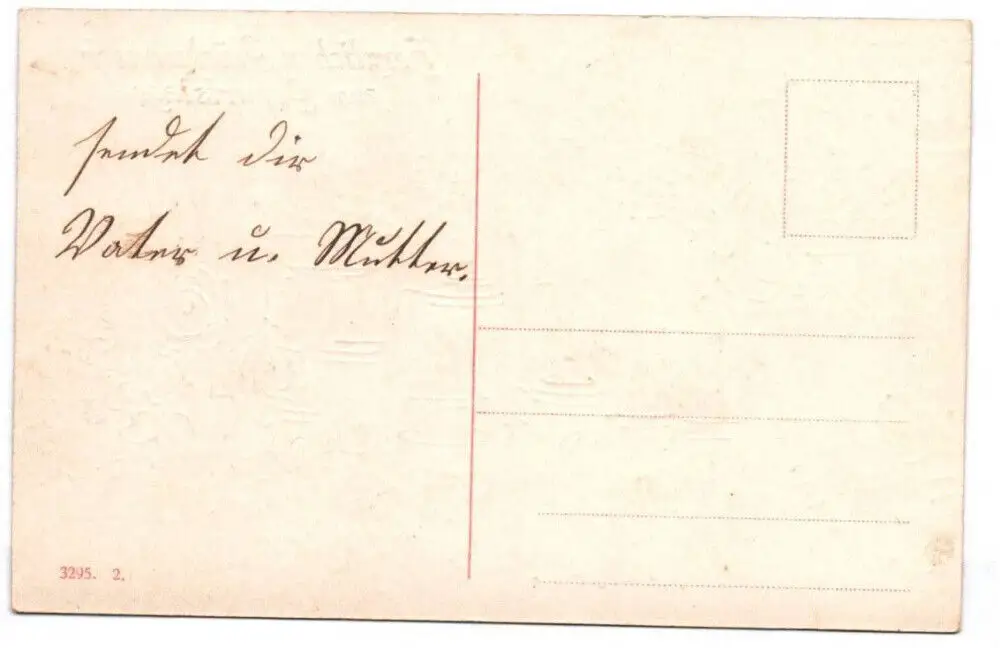 sendet dir
Vater u. Mutter.
3295. 2.